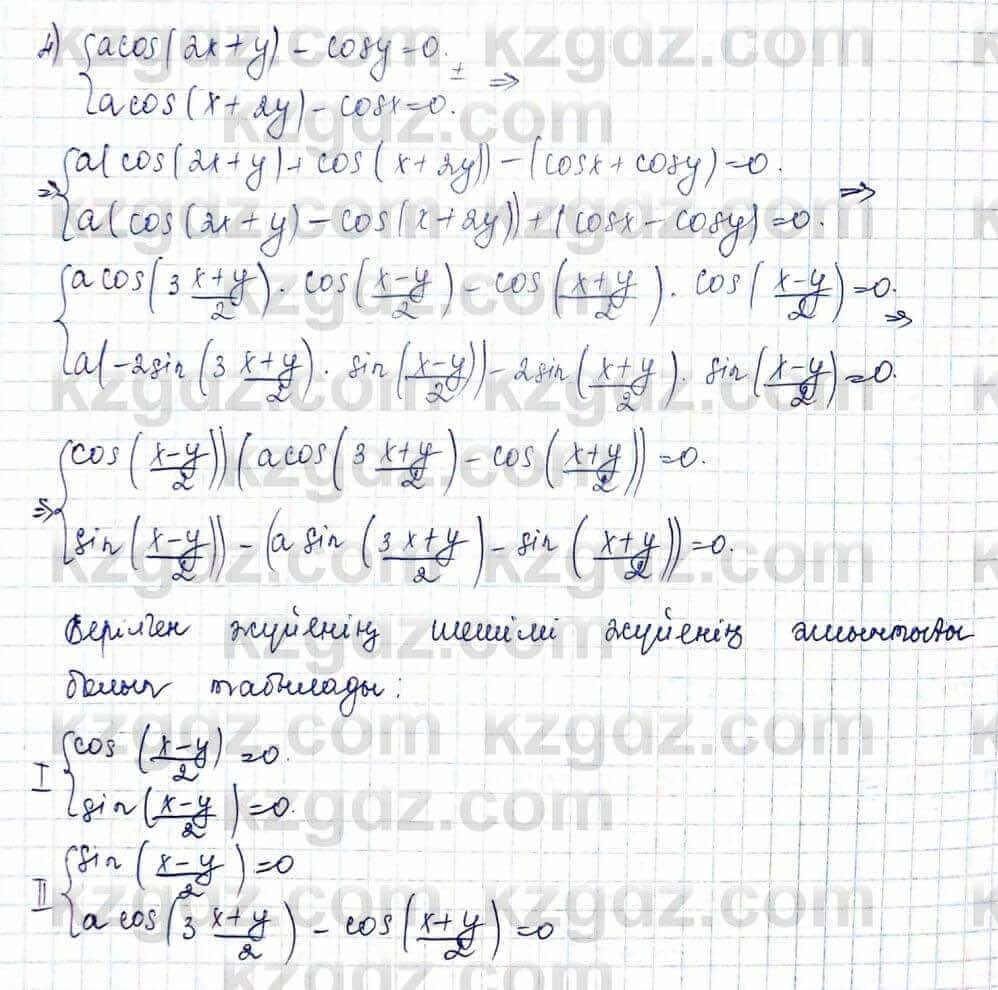 4) { a cos(2x+y) - cosy = 0.
{ a cos(x+2y) - cosx = 0. ± ⇒
⇒ { a(cos(2x+y) + cos(x+2y)) - (cosx + cosy) = 0.
{ a(cos(2x+y) - cos(x+2y)) + (cosx - cosy) = 0. ⇒
{ a cos(3 (x+y)/2) · cos((x-y)/2) - cos((x+y)/2) · cos((x-y)/2) = 0.
{ a(-2sin(3 (x+y)/2) · sin((x-y)/2)) - 2sin((x+y)/2) · sin((x-y)/2) = 0. ⇒
⇒ { cos((x-y)/2))(a cos(3 (x+y)/2) - cos((x+y)/2)) = 0.
{ sin((x-y)/2)) - (a sin((3x+y)/2) - sin((x+y)/2)) = 0.
Берілген жүйенің шешімі жүйенің жиынтығы
болып табылады:
I { cos((x-y)/2) = 0.
{ sin((x-y)/2) = 0.
II { sin((x-y)/2) = 0
{ a cos(3 (x+y)/2) - cos((x+y)/2) = 0
kzgdz.com